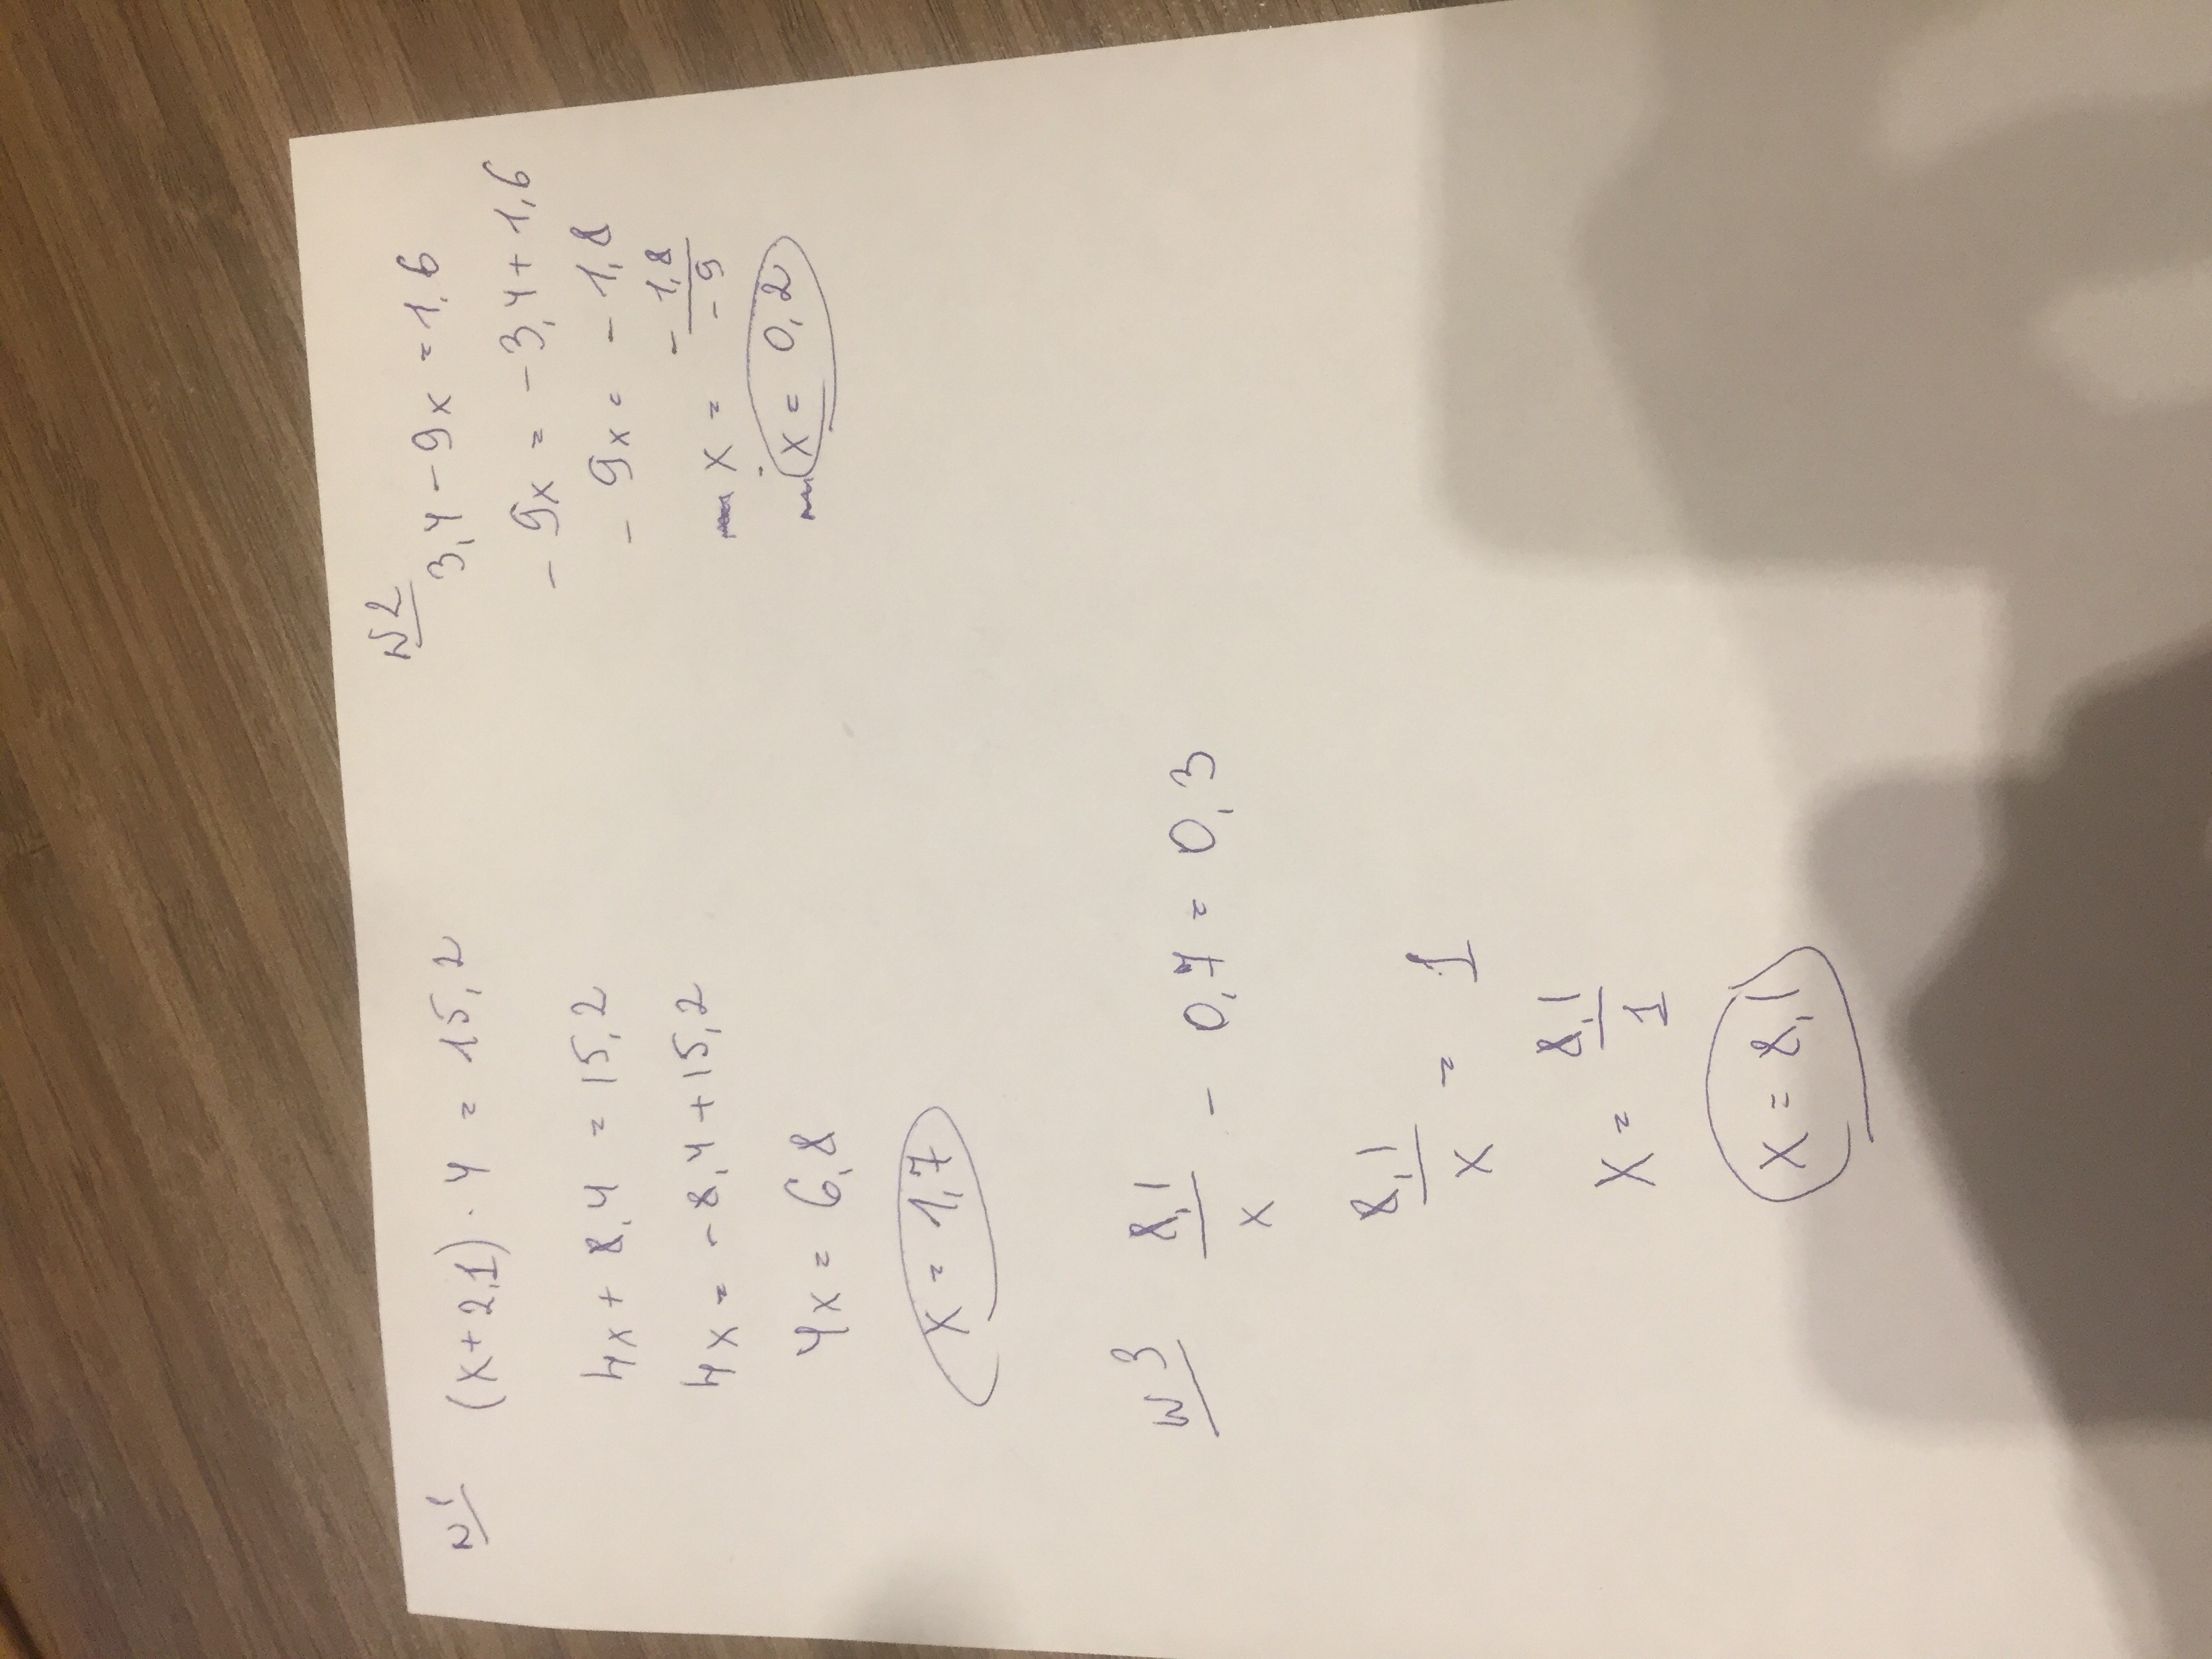 №1 (x+2,1)·4 = 15,2
4x + 8,4 = 15,2
4x = -8,4+15,2
4x = 6,8
x = 1,7
№2
3,4-9x=1,6
-9x = -3,4+1,6
-9x = -1,8
x = -1,8/-9
x = 0,2
№3 8,1/x - 0,7 = 0,3
8,1/x = 1
x = 8,1/1
x = 8,1